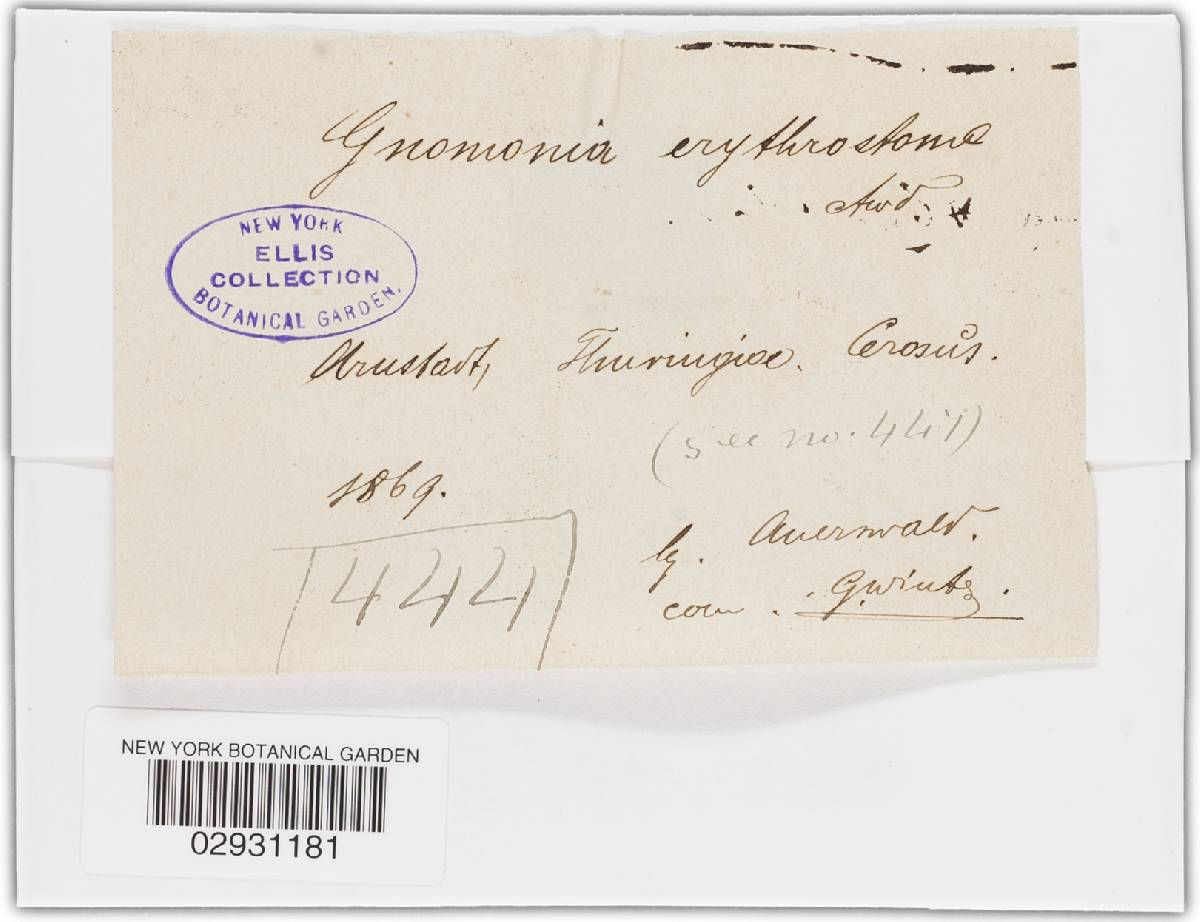 Gnomonia erythrostoma
Awd.
NEW YORK
ELLIS
COLLECTION
BOTANICAL GARDEN.
Arnstadt, Thuringiae. Cerasus.
(see no. 441)
1869.
444
lg. Auerswald.
com. G. Winter.
NEW YORK BOTANICAL GARDEN
02931181